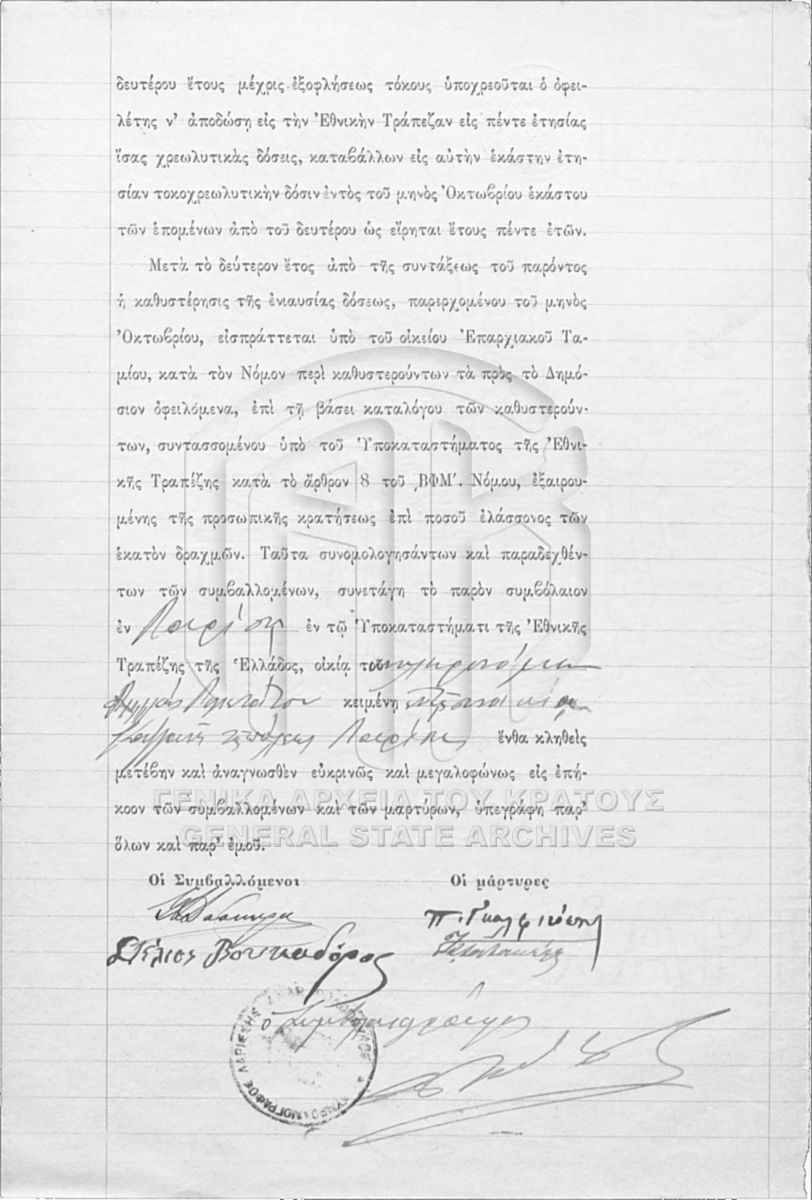 δευτέρου ἔτους μέχρις ἐξοφλήσεως τόκους ὑποχρεοῦται ὁ ὀφει-
λέτης ν' ἀποδώσῃ εἰς τὴν Ἐθνικὴν Τράπεζαν εἰς πέντε ἐτησίας
ἴσας χρεωλυτικὰς δόσεις, καταβάλλων εἰς αὐτὴν ἑκάστην ἐτη-
σίαν τοκοχρεωλυτικὴν δόσιν ἐντὸς τοῦ μηνὸς Ὀκτωβρίου ἑκάστου
τῶν ἑπομένων ἀπὸ τοῦ δευτέρου ὡς εἴρηται ἔτους πέντε ἐτῶν.
Μετὰ τὸ δεύτερον ἔτος ἀπὸ τῆς συντάξεως τοῦ παρόντος
ἡ καθυστέρησις τῆς ἐνιαυσίας δόσεως, παρερχομένου τοῦ μηνὸς
Ὀκτωβρίου, εἰσπράττεται ὑπὸ τοῦ οἰκείου Ἐπαρχιακοῦ Τα-
μίου, κατὰ τὸν Νόμον περὶ καθυστερούντων τὰ πρὸς τὸ Δημό-
σιον ὀφειλόμενα, ἐπὶ τῇ βάσει καταλόγου τῶν καθυστερούν-
των, συντασσομένου ὑπὸ τοῦ Ὑποκαταστήματος τῆς Ἐθνι-
κῆς Τραπέζης κατὰ τὸ ἄρθρον 8 τοῦ ͵ΒΦΜ΄. Νόμου, ἐξαιρου-
μένης τῆς προσωπικῆς κρατήσεως ἐπὶ ποσοῦ ἐλάσσονος τῶν
ἑκατὸν δραχμῶν. Ταῦτα συνομολογησάντων καὶ παραδεχθέν-
των τῶν συμβαλλομένων, συνετάγη τὸ παρὸν συμβόλαιον
ἐν Λαρίσῃ ἐν τῷ Ὑποκαταστήματι τῆς Ἐθνικῆς
Τραπέζης τῆς Ἑλλάδος, οἰκίᾳ
κειμένῃ
Λαρίσης ἔνθα κληθεὶς
μετέβην καὶ ἀναγνωσθὲν εὐκρινῶς καὶ μεγαλοφώνως εἰς ἐπή-
κοον τῶν συμβαλλομένων καὶ τῶν μαρτύρων, ὑπεγράφη παρ'
ὅλων καὶ παρ' ἐμοῦ.
ΓΕΝΙΚΑ ΑΡΧΕΙΑ ΤΟΥ ΚΡΑΤΟΥΣ
GENERAL STATE ARCHIVES
Οἱ Συμβαλλόμενοι Οἱ μάρτυρες
ὁ Συμβολαιογράφος
ΣΥΜΒΟΛΑΙΟΓΡΑΦΟΣ ΛΑΡΙΣΣΗΣ